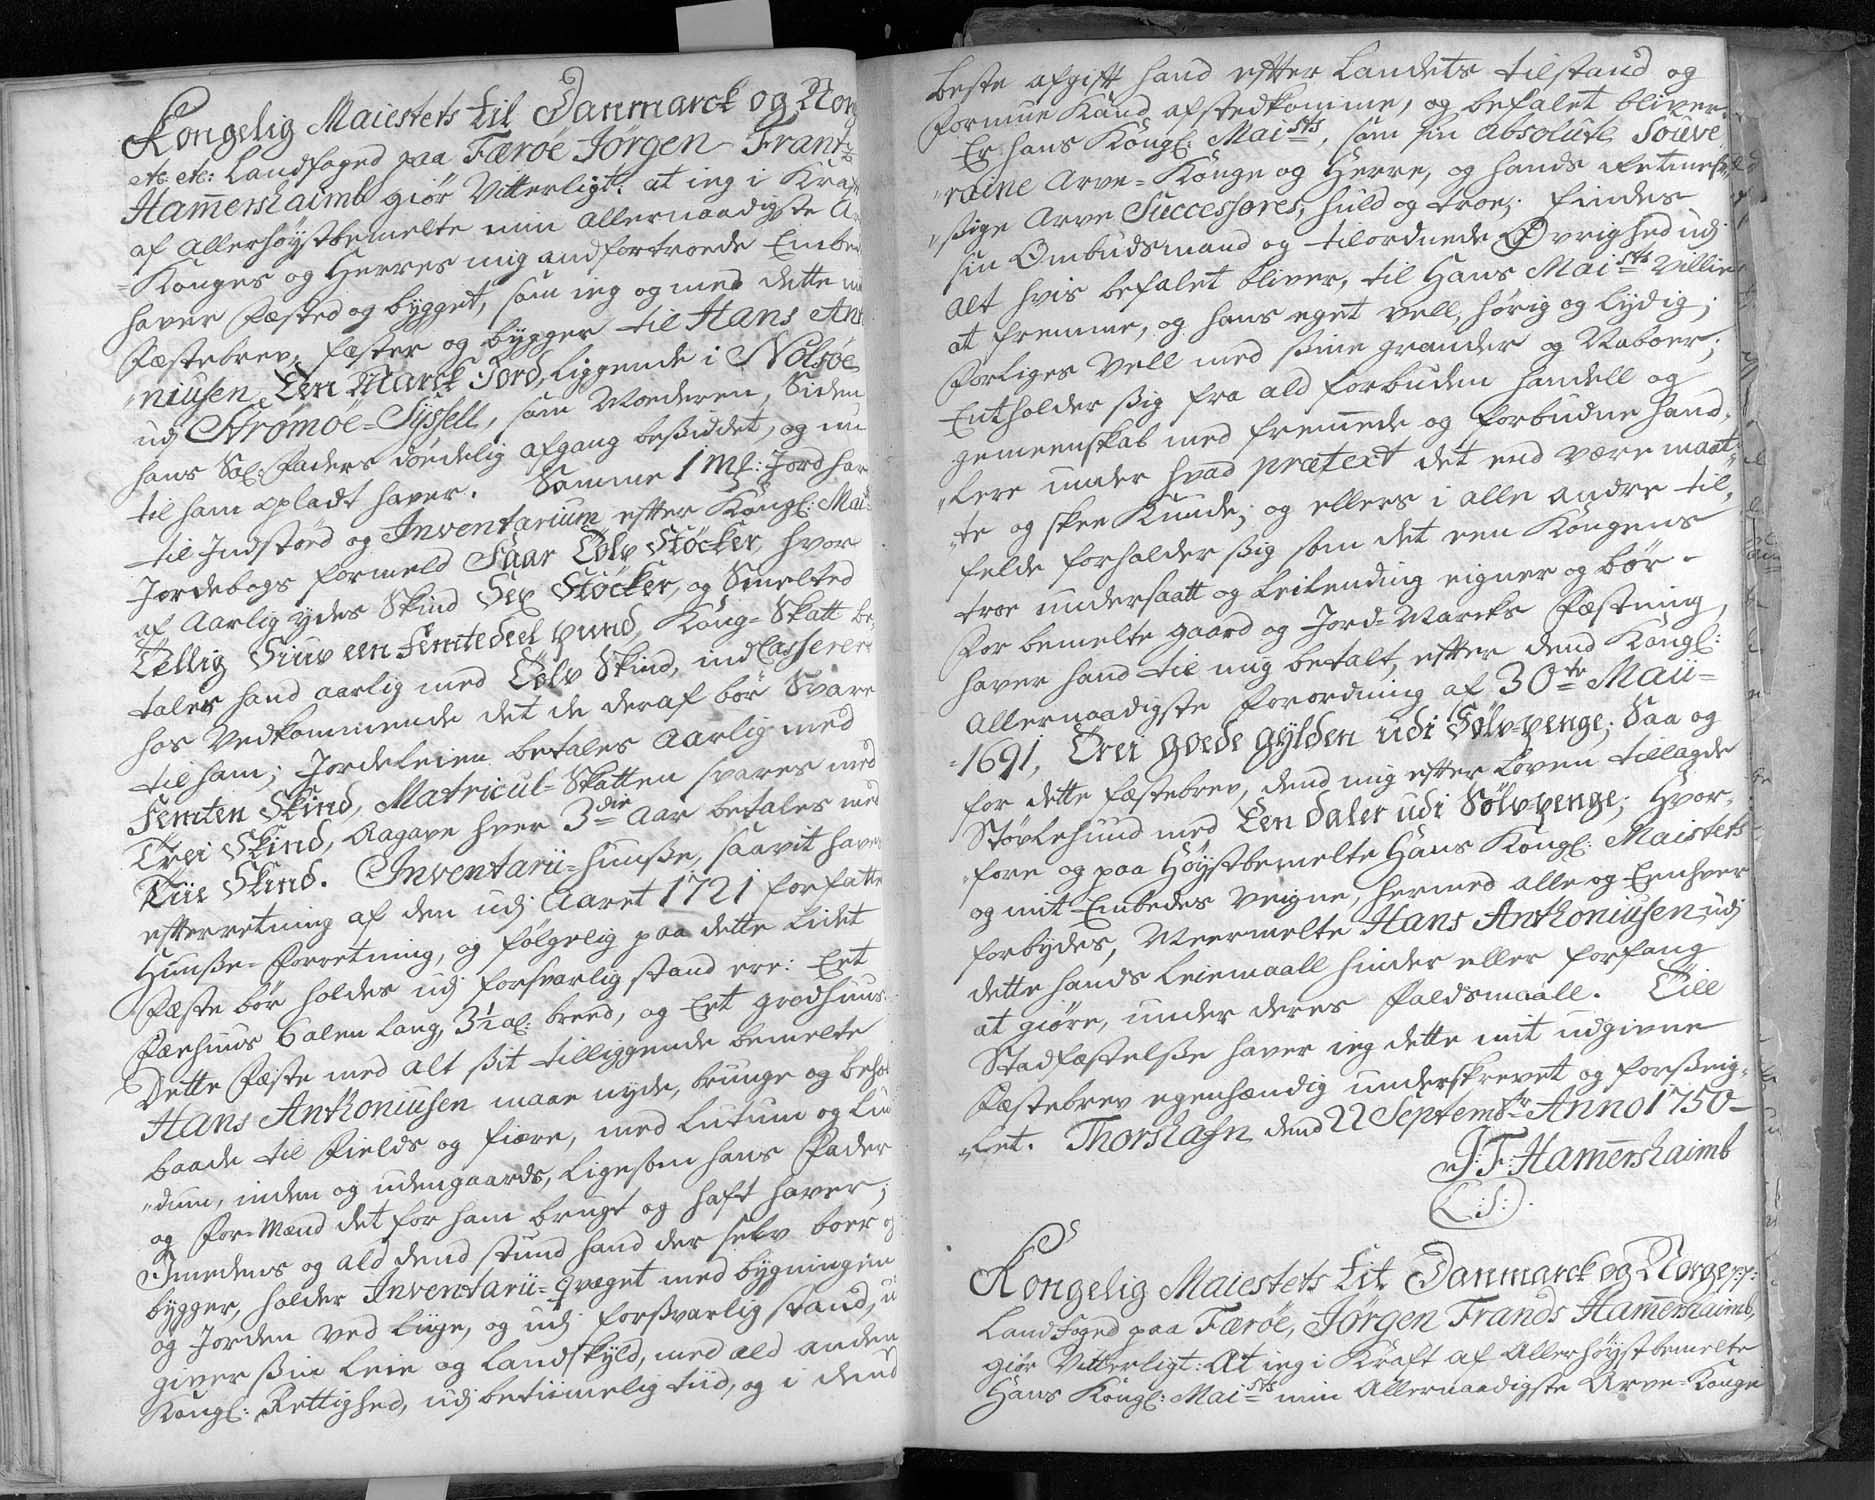 Kongelig Maiestets til Danmarck og Nor
etc. etc: Landfoged paa Færöe Jörgen Frant
Ham̄ershaimb giör Vitterligt: at ieg i Kra
af allerhöystbemelte min allernaadigste A
Konges og Herres mig andfortroede Embe
haver fæsted og bygget, som ieg og med dette mi
Fæstebrev, fæster og bÿgger til Hans An
niusen, Een Marck Jord, liggende i Nolsöe
udj Strömöe-Sÿssell, som Moderen, Siden
hans Sal: Faders dödelig afgang besiddet, og nu
til ham opladt haver. Samme 1 Mk: Jord har
til Indstöd og Inventarium efter Kongl: Mai
Jordebogs formeld Faar Tolv Stöcker, hvor
af aarlig ydes Skind Sex Stöcker, og Smelted
Tællig Siuv een femtedeel pund, Kong-Skatt be
tales hand aarlig med Tolv Skind, ind Casserer
hos Vedkommende det de deraf bör Svare
til ham; Jordeleien betales aarlig med
Femten Skind, Matricul-Skatten svares med
Trei Skind, Aagave hver 3die Aar betales med
Tiie Skind. Inventarii-huusse, saavit have
efterretning af den udj Aaret 1721 forfatte
Huusse-Forretning, og fölgelig paa dette Lidet
Fæste bör holdes udj forsvarlig stand ere: Eet
Fæehuus 6 alen lang, 3½ al: breed, og Eet grodhuus
Dette Fæste med alt sit tilliggende bemelte
Hans Anthoniusen maae nyde, bruuge og beho
baade til Fields og fiære, med Lutum og Lu
dum, inden og udengaards, ligesom hans Fader
og For-Mænd det for ham brugt og haft haver;
Imedens og ald dend stund hand der selv boer og
bygger, holder Inventarii-qvæget med bygningen
og Jorden ved liige, og udj forsvarlig stand, u
giver sin Leie og Landskyld, med ald anden
Kongl: Rettighed, udj betiimelig tiid, og i dend
beste afgift hand efter Landets tilstand og
formue kand afstedkomme, og befalet bliver.
Er hans Kongl: Maists, som sin absolute Souve
raine Arve-Konge og Herre, og hands Retmes
sige Arve Successores, huld og troe; findes
sin Ombudsmand og tilordnede Øvrighed udj
alt hvis befalet bliver, til Hans Maists Villie
at fremme, og hans eget vell, hörig og lydig;
Forliges vell med sine grander og Naboer;
Entholder sig fra ald forbuden handell og
gemeenskab med fremmede og forbudne hand
lere under hvad prætext det end være maat
te og skee kunde; og ellers i alle andre til
felde forholder sig som det een Kongens
troe undersaatt og Leilending eigner og bör.
For bemelte gaard og Jord-Marcks Fæstning,
haver hand til mig betalt, efter dend Kongl:
Allernaadigste Forordning af 30te Maii
1691, Trei goede gylden udi Sölvpenge; Saa og
for dette fæstebrev, dend mig efter Loven tillagde
Stövlehuud med Een daler udi Sölvpenge; Hvor
fore og paa Höystbemelte Hans Kongl: Maistets
og mit Embedes veigne, hermed alle og Eenhver
forbydes, Meermelte Hans Anthoniusen udj
dette hands Leiemaall hinder eller forfang
at giöre, under deres Faldsmaall. Till
Stadfæstelsse haver ieg dette mit udgivne
Fæstebrev egenhændig underskrevet og forseig
let. Thorshafn dend 22 Septembr Anno 1750
J: F: Ham̄ershaimb
(L:S:).
Kongelig Maiestets til Danmarck og Norge pp:
Landfoged paa Færöe, Jörgen Frands Ham̄ershaimb,
giör Vitterligt: At ieg i Kraft af Allerhöystbemelte
Hans Kongl: Maists min Allernaadigste Arve-Konge